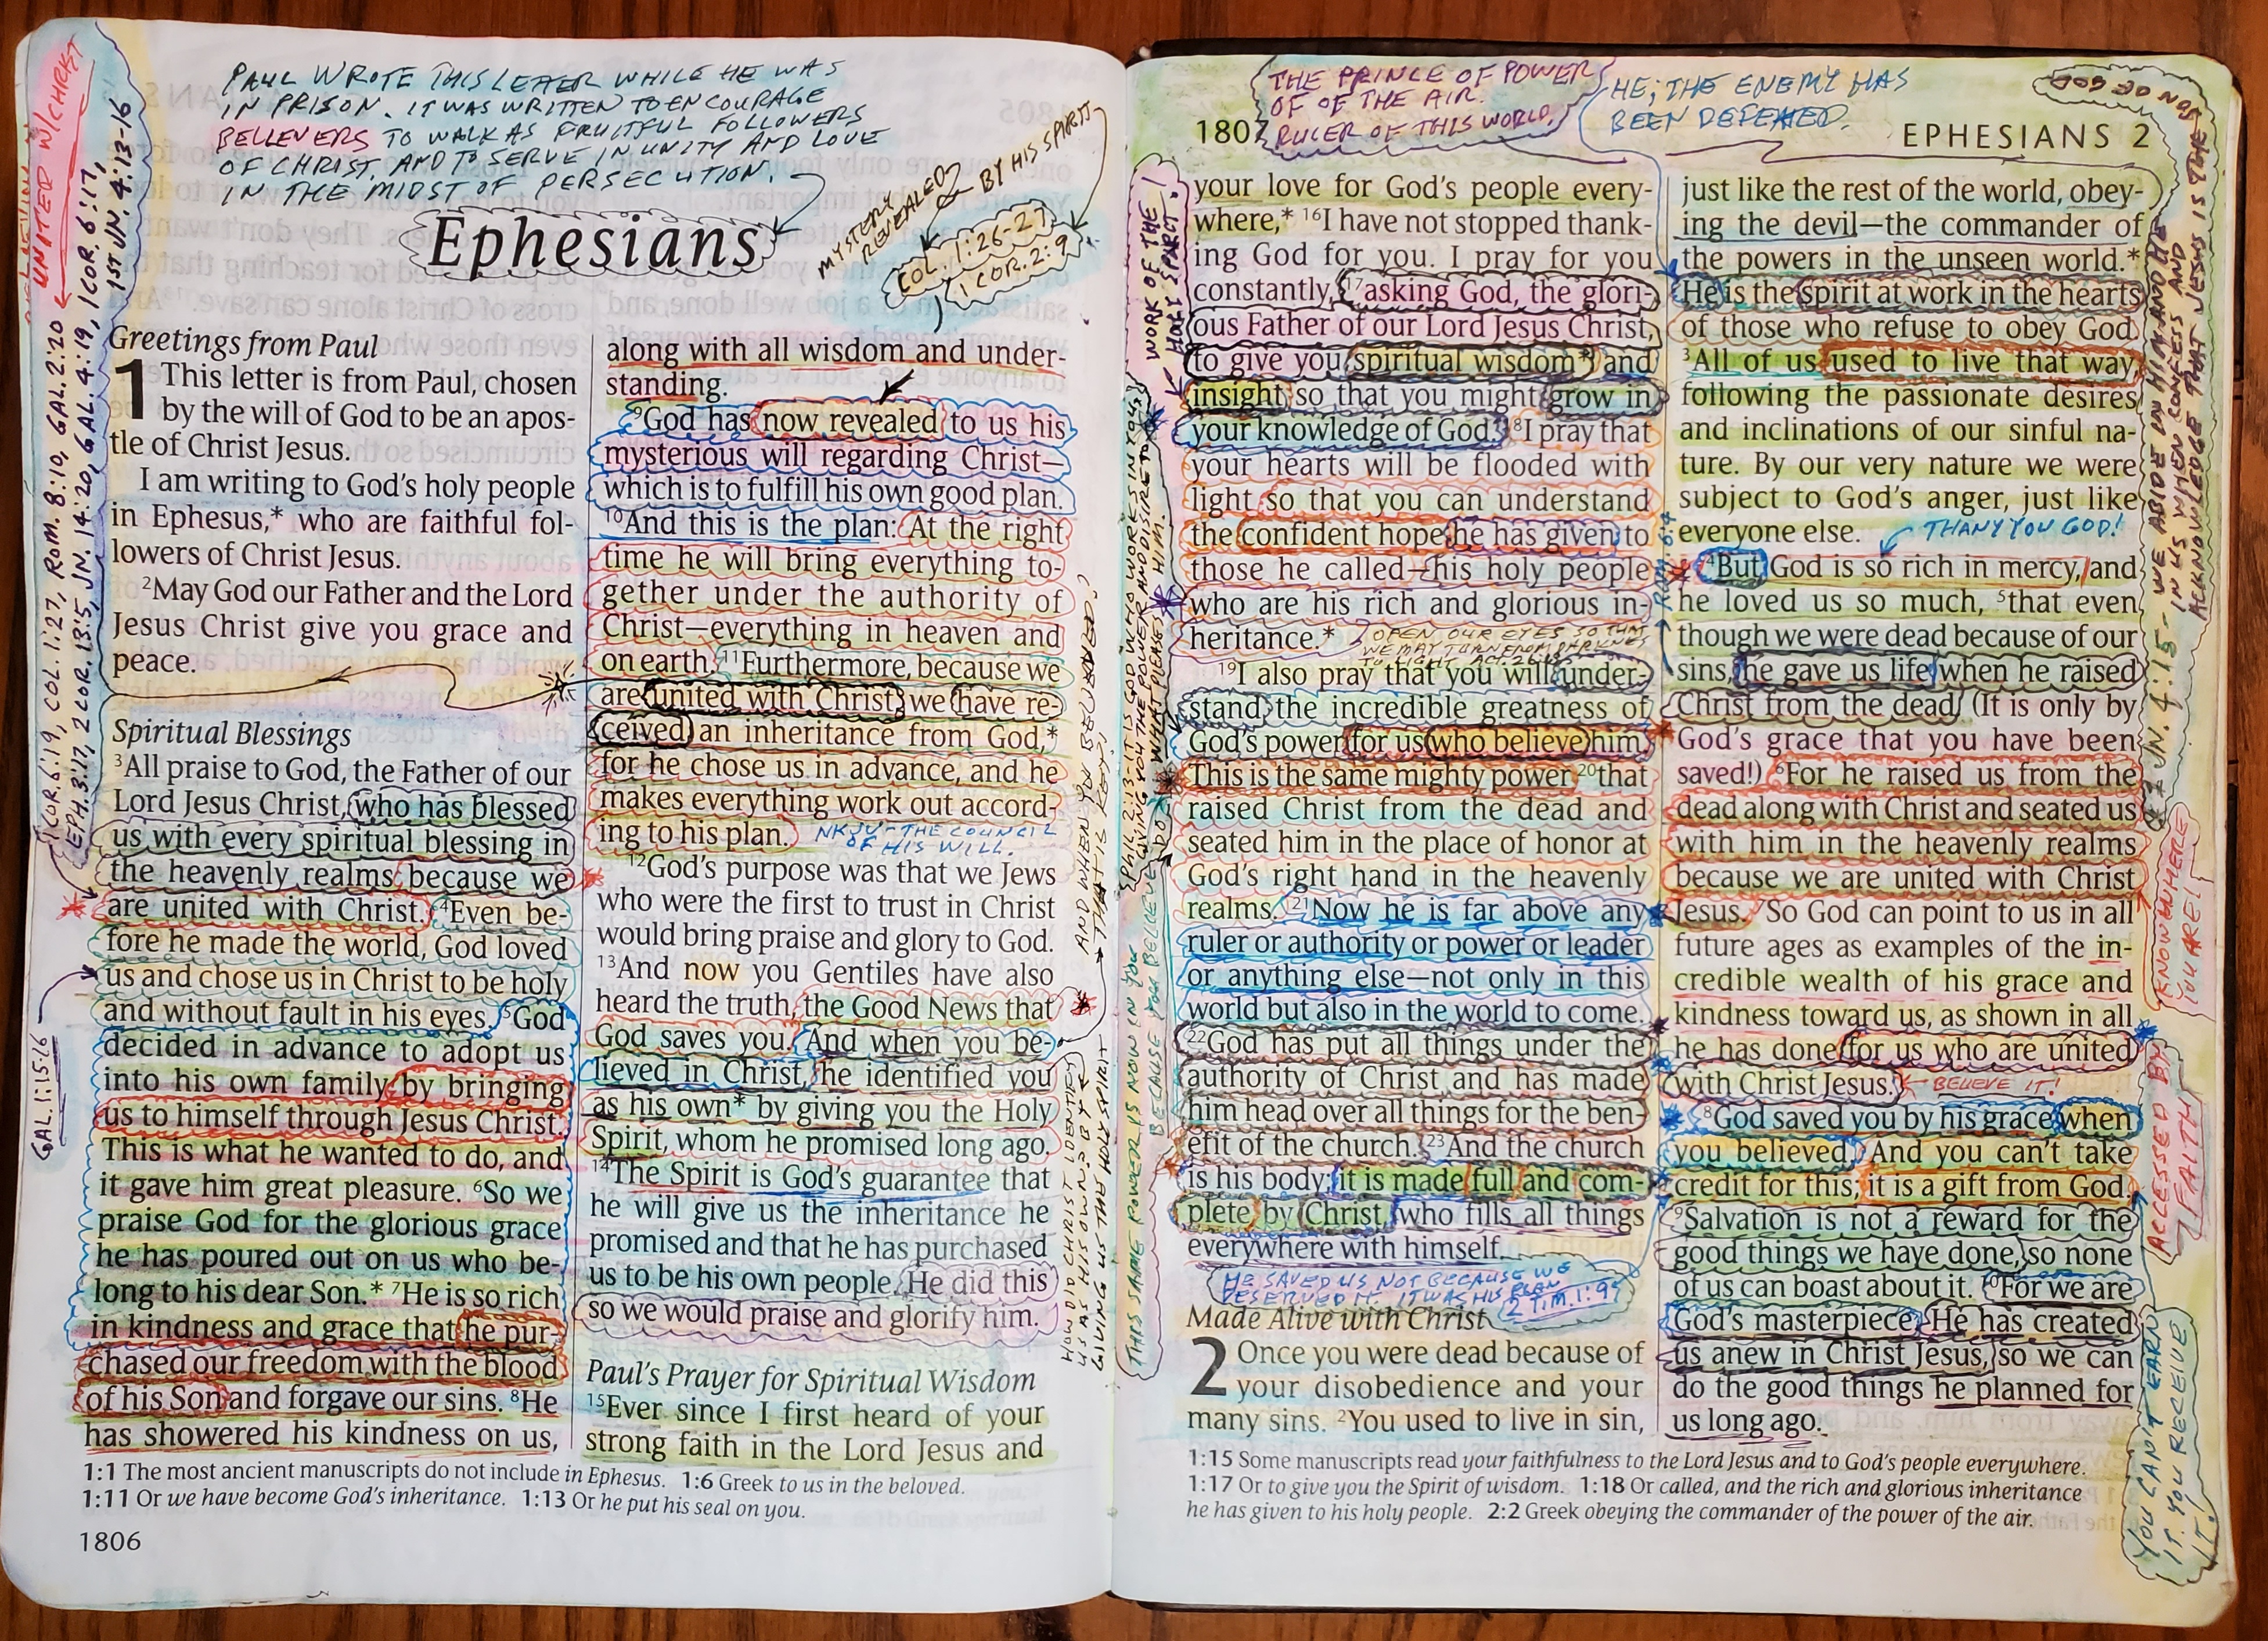 PAUL WROTE THIS LETTER WHILE HE WAS
IN PRISON. IT WAS WRITTEN TO ENCOURAGE
BELIEVERS TO WALK AS FRUITFUL FOLLOWERS
OF CHRIST, AND TO SERVE IN UNITY AND LOVE
IN THE MIDST OF PERSECUTION.
UNITED W/CHRIST
1 COR. 6:19, COL. 1:27, ROM. 8:10, GAL. 2:20
EPH. 3:17, 2 COR. 13:5, JN. 14:20, GAL. 4:19, 1 COR. 6:17,
1ST JN. 4:13-16
GAL. 1:15-16
MYSTERY
REVEALED
BY HIS SPIRIT
COL. 1:26-27
1 COR. 2:9
Ephesians
Greetings from Paul
1 This letter is from Paul, chosen
by the will of God to be an apos-
tle of Christ Jesus.
I am writing to God's holy people
in Ephesus,* who are faithful fol-
lowers of Christ Jesus.
2May God our Father and the Lord
Jesus Christ give you grace and
peace.
Spiritual Blessings
3All praise to God, the Father of our
Lord Jesus Christ, who has blessed
us with every spiritual blessing in
the heavenly realms because we
are united with Christ. 4Even be-
fore he made the world, God loved
us and chose us in Christ to be holy
and without fault in his eyes. 5God
decided in advance to adopt us
into his own family by bringing
us to himself through Jesus Christ.
This is what he wanted to do, and
it gave him great pleasure. 6So we
praise God for the glorious grace
he has poured out on us who be-
long to his dear Son.* 7He is so rich
in kindness and grace that he pur-
chased our freedom with the blood
of his Son and forgave our sins. 8He
has showered his kindness on us,
along with all wisdom and under-
standing.
9God has now revealed to us his
mysterious will regarding Christ—
which is to fulfill his own good plan.
10And this is the plan: At the right
time he will bring everything to-
gether under the authority of
Christ—everything in heaven and
on earth. 11Furthermore, because we
are united with Christ, we have re-
ceived an inheritance from God,*
for he chose us in advance, and he
makes everything work out accord-
ing to his plan.
NKJV - THE COUNCIL
OF HIS WILL.
12God's purpose was that we Jews
who were the first to trust in Christ
would bring praise and glory to God.
13And now you Gentiles have also
heard the truth, the Good News that
God saves you. And when you be-
lieved in Christ, he identified you
as his own* by giving you the Holy
Spirit, whom he promised long ago.
14The Spirit is God's guarantee that
he will give us the inheritance he
promised and that he has purchased
us to be his own people. He did this
so we would praise and glorify him.
Paul's Prayer for Spiritual Wisdom
15Ever since I first heard of your
strong faith in the Lord Jesus and
AND WHEN YOU BELIEVED?
THAT IS KEY!
HOW DID CHRIST IDENTIFY
US AS HIS OWN? BY
GIVING US THE HOLY SPIRIT
1:1 The most ancient manuscripts do not include in Ephesus. 1:6 Greek to us in the beloved.
1:11 Or we have become God's inheritance. 1:13 Or he put his seal on you.
1806
THE PRINCE OF POWER
OF OF THE AIR.
RULER OF THIS WORLD.
HE; THE ENEMY HAS
BEEN DEFEATED.
1807
EPHESIANS 2
WORK OF THE
HOLY SPIRIT!
PHIL. 2:13 - IT IS GOD WHO WORKS IN YOU,
GIVING YOU THE POWER AND DESIRE TO
DO WHAT PLEASES HIM.
THIS SAME POWER IS NOW IN YOU
BECAUSE YOU BELIEVE
your love for God's people every-
where,* 16I have not stopped thank-
ing God for you. I pray for you
constantly, 17asking God, the glori-
ous Father of our Lord Jesus Christ,
to give you spiritual wisdom* and
insight so that you might grow in
your knowledge of God. 18I pray that
your hearts will be flooded with
light so that you can understand
the confident hope he has given to
those he called—his holy people
who are his rich and glorious in-
heritance.*
OPEN OUR EYES SO THEY
MAY TURN FROM DARKNESS
TO LIGHT ACT. 26:18
19I also pray that you will under-
stand the incredible greatness of
God's power for us who believe him.
This is the same mighty power 20that
raised Christ from the dead and
seated him in the place of honor at
God's right hand in the heavenly
realms. 21Now he is far above any
ruler or authority or power or leader
or anything else—not only in this
world but also in the world to come.
22God has put all things under the
authority of Christ and has made
him head over all things for the ben-
efit of the church. 23And the church
is his body; it is made full and com-
plete by Christ, who fills all things
everywhere with himself.
HE SAVED US NOT BECAUSE WE
DESERVED IT. IT WAS HIS PLAN
2 TIM. 1:9
Made Alive with Christ
2 Once you were dead because of
your disobedience and your
many sins. 2You used to live in sin,
just like the rest of the world, obey-
ing the devil—the commander of
the powers in the unseen world.*
He is the spirit at work in the hearts
of those who refuse to obey God.
3All of us used to live that way,
following the passionate desires
and inclinations of our sinful na-
ture. By our very nature we were
subject to God's anger, just like
everyone else.
THANY YOU GOD!
4But God is so rich in mercy, and
he loved us so much, 5that even
though we were dead because of our
sins, he gave us life when he raised
Christ from the dead. (It is only by
God's grace that you have been
saved!) 6For he raised us from the
dead along with Christ and seated us
with him in the heavenly realms
because we are united with Christ
Jesus. 7So God can point to us in all
future ages as examples of the in-
credible wealth of his grace and
kindness toward us, as shown in all
he has done for us who are united
with Christ Jesus.
BELIEVE IT!
8God saved you by his grace when
you believed. And you can't take
credit for this; it is a gift from God.
9Salvation is not a reward for the
good things we have done, so none
of us can boast about it. 10For we are
God's masterpiece. He has created
us anew in Christ Jesus, so we can
do the good things he planned for
us long ago.
1 JN. 4:15 - WE ABIDE IN HIM AND HE
IN US WHEN CONFESS AND
ACKNOWLEDGE THAT JESUS IS THE
SON OF GOD
KNOW WHERE
YOU ARE!
ACCESSED BY
FAITH
YOU CAN'T EARN
IT. YOU RECEIVE
IT.
1:15 Some manuscripts read your faithfulness to the Lord Jesus and to God's people everywhere.
1:17 Or to give you the Spirit of wisdom. 1:18 Or called, and the rich and glorious inheritance
he has given to his holy people. 2:2 Greek obeying the commander of the power of the air.